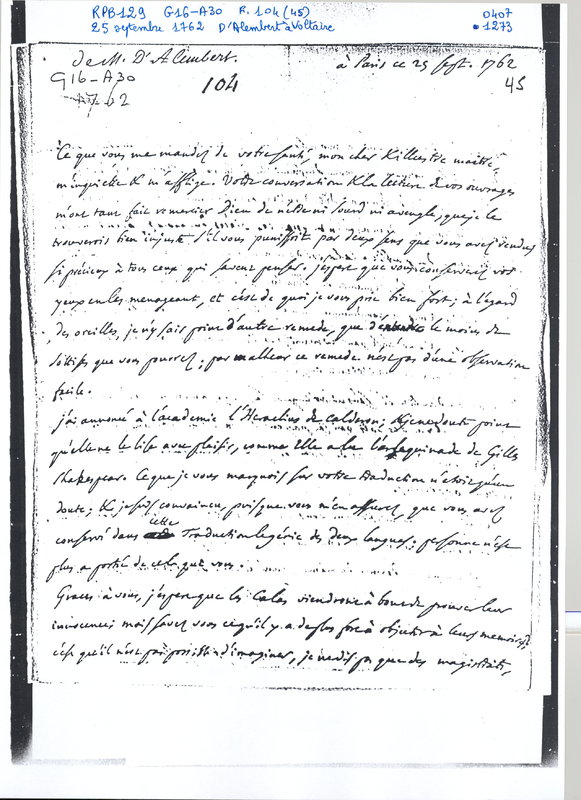 RPB129 G16-A30 R. 104 (45)
25 septembre 1762 D'Alembert à Voltaire
0407
1273
de M. D'Alembert.
à Paris ce 25 sept. 1762
G16-A30
104
45
Ce que vous me mandez de votre santé, mon cher & illustre maitre,
m'inquiette & m'afflige. Votre conversation & la lecture de vos ouvrages
m'ont tant fait remercier Dieu de n'être ni sourd ni aveugle, que je le
trouverois bien injuste s'il vous punissoit par deux sens que vous avez rendus
si précieux à tous ceux qui savent penser. j'espere que vous conserverez vos
yeux en les menageant, et c'est de quoi je vous prie bien fort; à l'égard
des oreilles, je n'y sais point d'autre remede, que d'entendre le moins de
sottises que vous pourrez; par malheur ce remede n'est pas d'une observation
facile.
j'ai annoncé à l'académie l'Heraclius de Calderon; & je ne doute point
qu'elle ne le lise avec plaisir, comme elle a lu l'arlequinade de Gilles
Shakespear. Ce que je vous marquois sur votre traduction n'etoit qu'un
doute; & je suis convaincu, puisque vous m'en assurez, que vous avez
conservé dans cette traduction le génie des deux langues; personne n'est
plus a portée de cela que vous.
Graces à vous, j'espere que les Calas viendront à bout de prouver leur
innocence; mais savez vous ce qu'il y a de plus fort à objecter à leurs memoires?
c'est qu'il n'est pas possible d'imaginer, je ne dis pas que des magistrats,